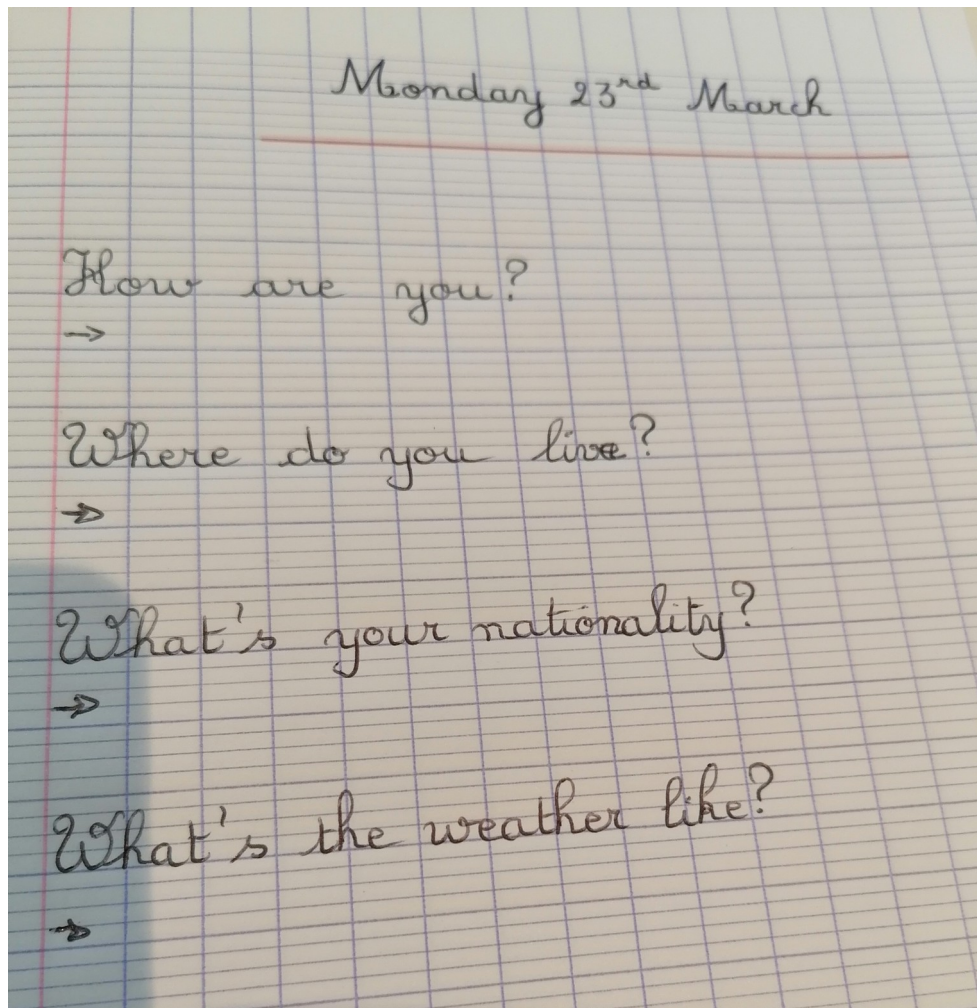 Monday 23rd March
How are you?
→
Where do you live?
→
What's your nationality?
→
What's the weather like?
→